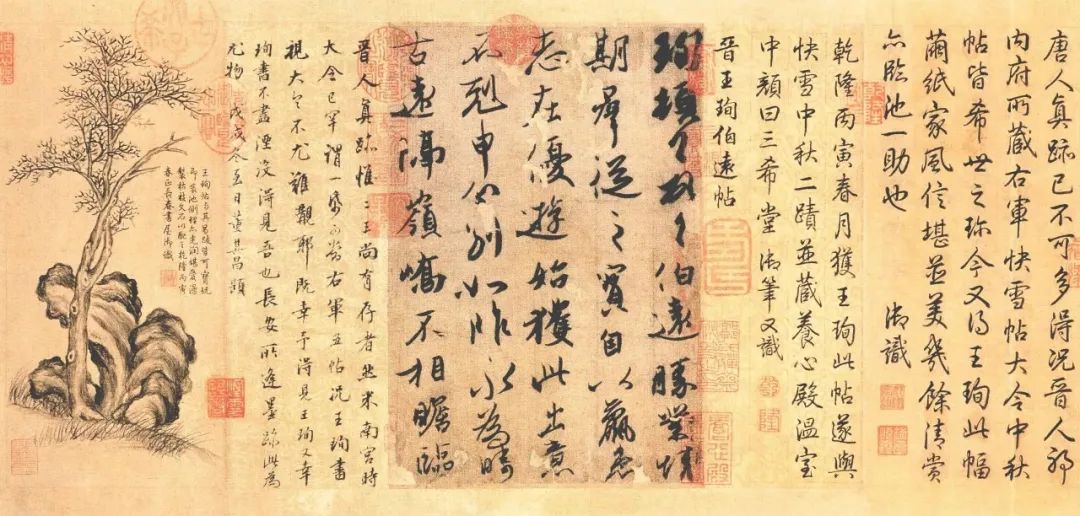 唐人真跡已不可多得况晉人耶
内府所藏右軍快雪帖大令中秋
帖皆希世之珍今又得王珣此幅
繭紙家風信堪並美幾餘清賞
亦臨池一助也 御識
乾隆丙寅春月獲王珣此帖遂與
快雪中秋二蹟並藏養心殿溫室
中顏曰三希堂 御筆又識
乾 隆
晉王珣伯遠帖
珣頓首頓首伯遠勝業情
期群從之寶自以羸患
志在優遊始獲此出意
不剋申分別如昨永為疇
古遠隔嶺嶠不相瞻臨
晉人真跡惟二王尚有存者然米南宮時
大令已罕謂一紙可當右軍五帖况王珣書
視大令不尤難覯耶既幸予得見王珣又幸
珣書不盡湮沒得見吾也長安所逢墨跡此為
尤物 戊戌冬至日董其昌題
王珣帖與其昌跋皆可寶玩
即裝池側理亦光潤堪愛漫
製枯枝文石以配之乾隆丙寅
春正長春書屋御識